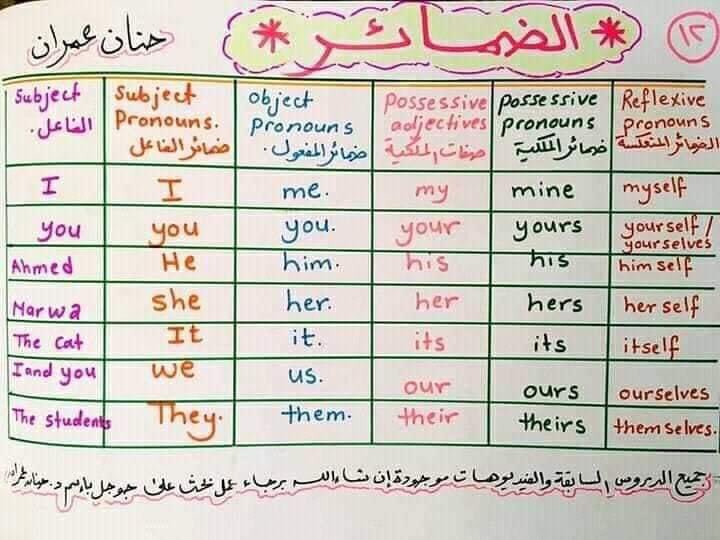 ١٢
* الضمائر *
حنان عمران
Subject الفاعل. | Subject Pronouns. ضمائر الفاعل | object pronouns ضمائر المفعول. | possessive adjectives صفات الملكية | possessive pronouns ضمائر الملكية | Reflexive pronouns الضمائر المنعكسة
I | I | me. | my | mine | myself
you | you | you. | your | yours | yourself / yourselves
Ahmed | He | him. | his | his | himself
Marwa | she | her. | her | hers | herself
The cat | It | it. | its | its | itself
I and you | we | us. | our | ours | ourselves
The students | They. | them. | their | theirs | themselves.
جميع الدروس السابقة والفيديوهات موجودة إن شاء الله برجاء عمل بحث على جوجل باسم د. حنان عمران